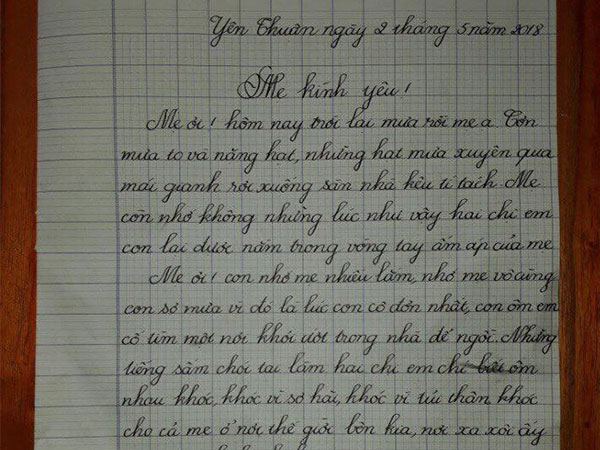 Yên Thuận ngày 2 tháng 5 năm 2018
Mẹ kính yêu!
Mẹ ơi! hôm nay trời lại mưa rồi mẹ ạ Cơn
mưa to và nặng hạt, những hạt mưa xuyên qua
mái gianh rơi xuống sàn nhà kêu tí tách. Mẹ
còn nhớ không những lúc như vậy hai chị em
con lại được nằm trong vòng tay ấm áp của mẹ
Mẹ ơi! con nhớ mẹ nhiều lắm, nhớ mẹ vô cùng
con sợ mưa vì đó là lúc con cô đơn nhất, con ôm em
cố tìm một nơi khỏi ướt trong nhà để ngồi. Những
tiếng sấm chói tai lắm hai chị em chỉ biết ôm
nhau khóc, khóc vì sợ hãi, khóc vì tủi thân khóc
cho cả mẹ ở nơi thế giới bên kia, nơi xa xôi ấy